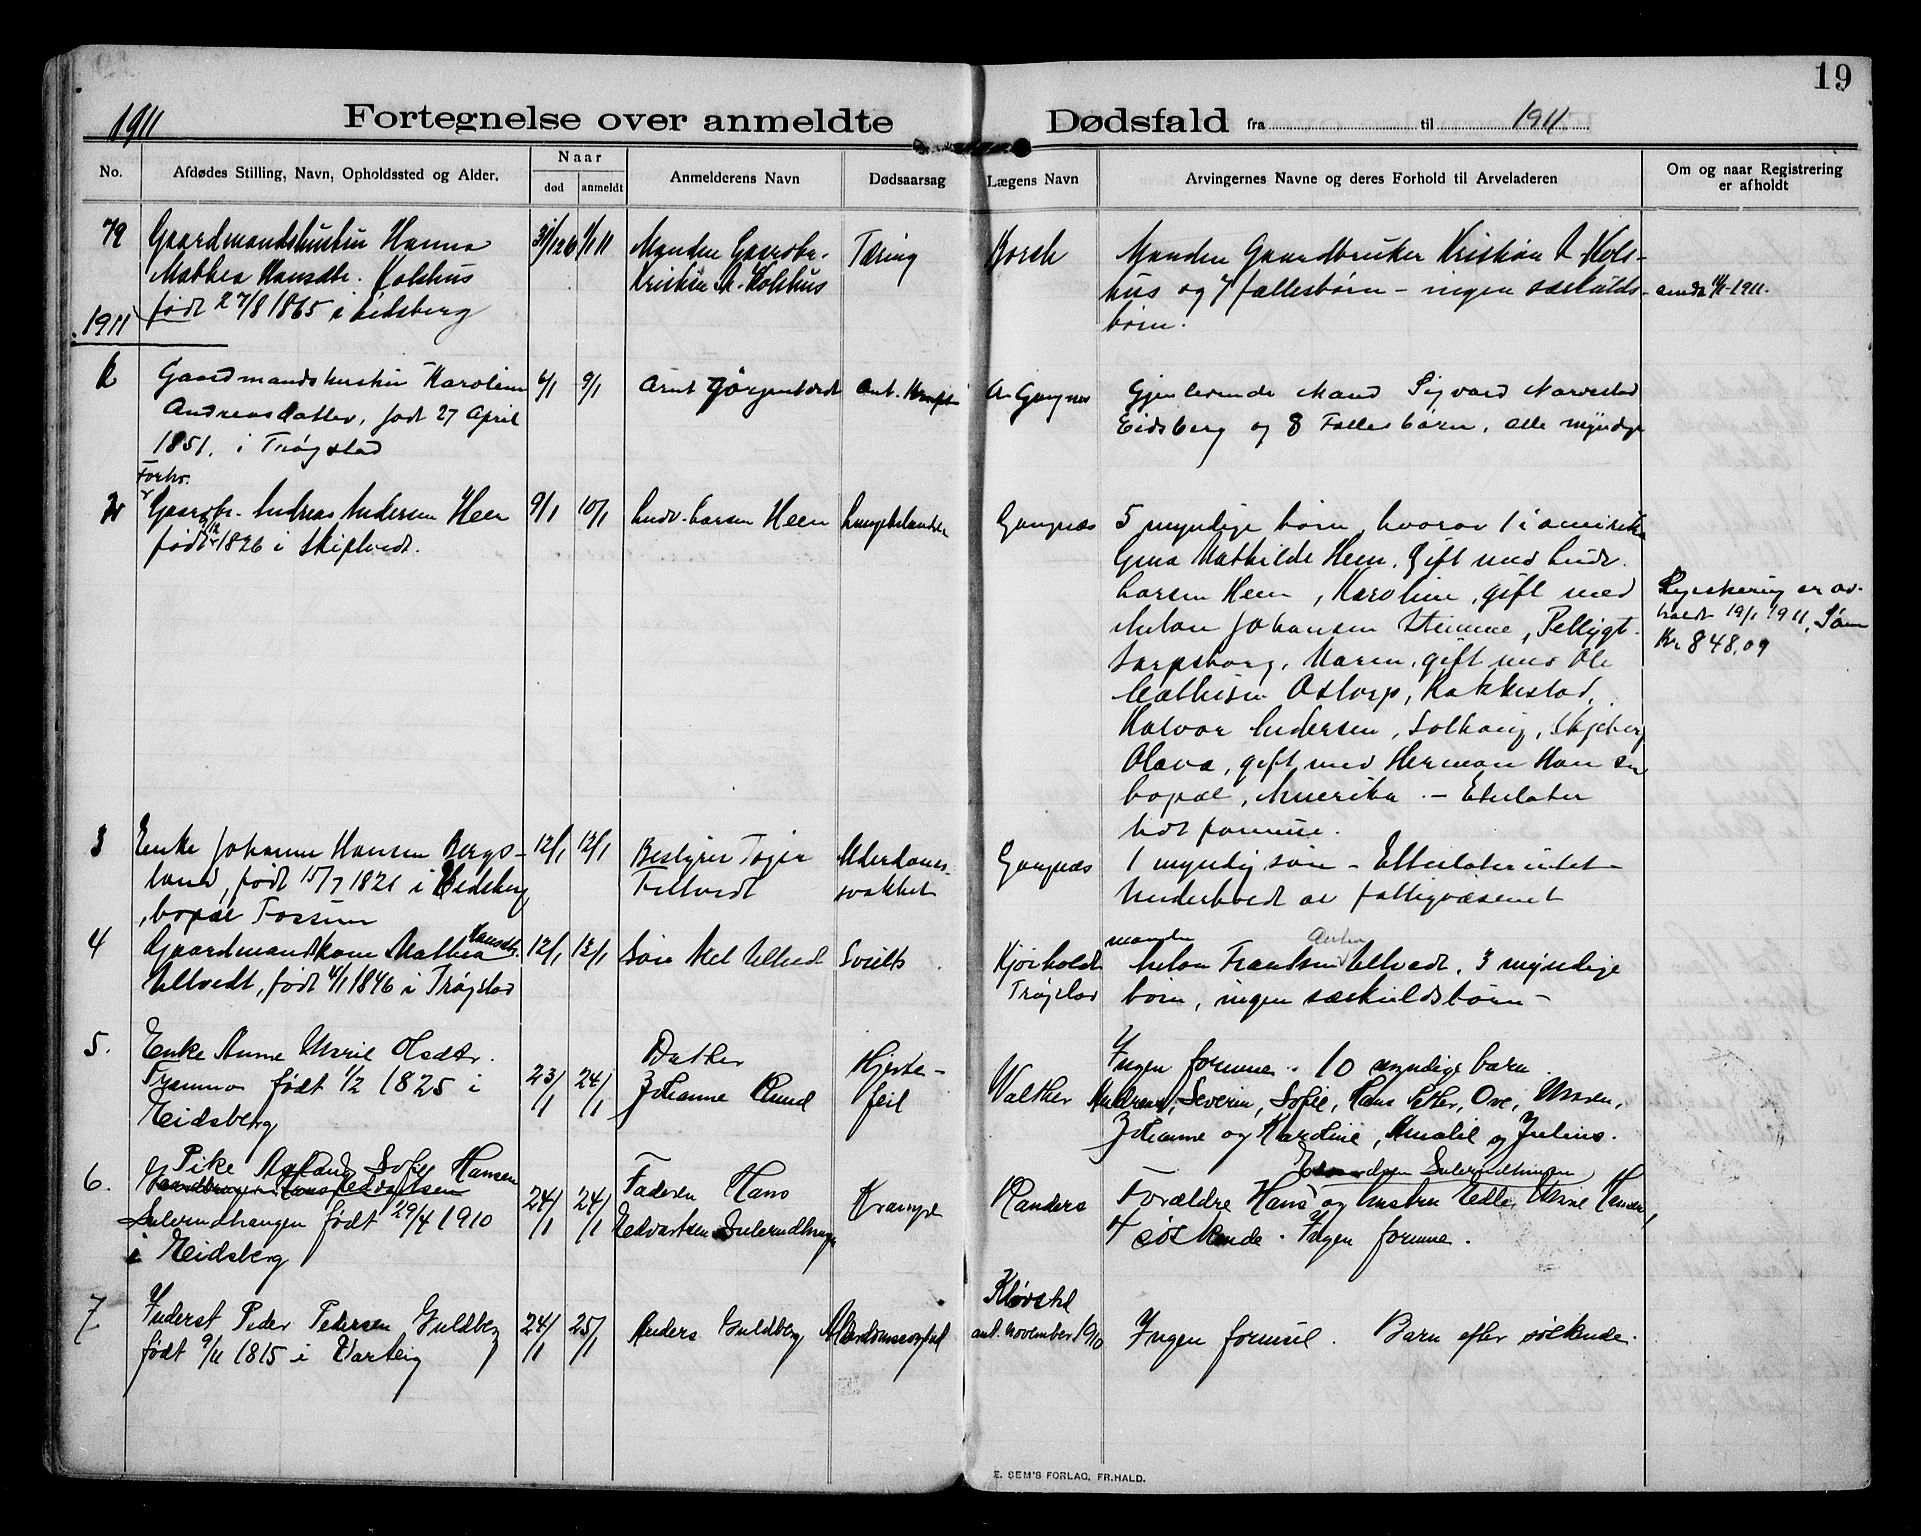 19
1911
Fortegnelse over anmeldte Dødsfald fra til 1911
No.
Afdødes Stilling, Navn, Opholdssted og Alder.
Naar
død
anmeldt
Anmelderens Navn
Dødsaarsag
Lægens Navn
Arvingernes Navne og deres Forhold til Arveladeren
Om og naar Registrering
er afholdt
79
Gaardmandshustru Hanna
Mathea Hansdtr. Kolshus
født 27/8 1865 i Eidsberg
31/12
1/1 11
Manden Gaardbr.
Kristian A. Kolshus
Tæring
Borch
Manden Gaardbruker Kristian A. Kols-
hus og 7 fællesbørn - ingen særkulds-
børn.
1911.
1911
Gaardmandshustru Karoline
Andreasdatter, født 27 April
1851. i Trøgstad
6/1
9/1
Arnt
A Gangnæs
Gjenlevende Mand Sigvard Narvestad
Eidsberg og 8 Fællesbørn, alle myndige
Forhv.
Gaardbr. Andreas Andersen Heen
født 1826 i Skiptvedt.
9/1
10/1
Ludv. Larsen Heen
Gangnæs
5 myndige børn, hvorav 1 i Amerika
Gina Mathilde Heen, Gift med Ludv.
Larsen Heen, Karoline, gift med
Anton Johansen
Sarpsborg, Maren, gift med Ole
Mathisen Ostorp, Rakkestad,
Halvor Andersen, Solhaug, Skjeberg
Olava, gift med Herman Hansen
bopæl, Amerika. - Efterlater
lidt formue.
Registrering er av-
holdt 19/1 1911,
Kr 848,09
3
Enke Johanne Hansen Bergs-
land, født 15/7 1821 i Eidsberg
, bopæl Fossum
12/1
12/1
Bestyrer
Alderdoms-
svakhet
Gangnæs
1 myndig søn - Efterlater intet
Underholdt av fattigvæsenet
4
Hansdtr.
Gaardmandskone Mathea
Ultvedt, født 4/1 1846 i Trøgstad
12/1
13/1
Kjørholdt
Trøgstad
manden
Anton Frantsen Ultvedt, 3 myndige
børn, ingen særkuldsbørn -
5.
Enke Anne Marie Olsdtr.
født 1/2 1825 i
Eidsberg
23/1
24/1
Datter
Johanne Ruud
Hjerte-
feil
Walther
Ingen formue. 10 myndige barn.
Andreas, Severin, Sofie, Hans Peter, Ove, Maren,
Johanne og Karoline, Amalie og Julius.
6.
Pike Sofie Hansen
født 29/4 1910
i Eidsberg
24/1
24/1
Faderen Hans
Edvartsen
Krampe
Randers
Forældre Hans og hustru Anne Hansen,
4 søskende. Ingen formue.
7
Inderst Peder Pedersen Guldberg
født 9/11 1815 i Varteig
24/1
25/1
Anders Guldberg
Kløvstad
ant. November 1910
Ingen formue. Barn efter søskende.
E. SEM'S FORLAG, FR.HALD.